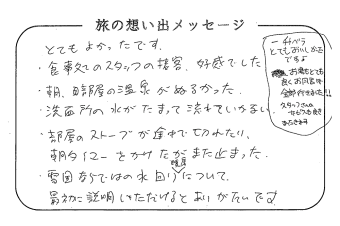 旅の想い出メッセージ
とてもよかったです。
・食事処のスタッフの接客、好感でした
・朝、部屋の温泉がぬるかった。
・洗面所の水がたまって流れていかない
・部屋のストーブが途中で切れたり、
朝タイマーをかけたがまた止まった。
・雪国ならではの水回り
暖房
について、
最初に説明いただけるとありがたいです
とてもおいしかった
ですよ
お湯もとても
良く
スタッフさんの